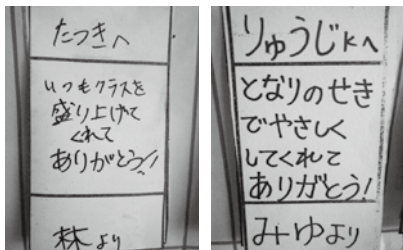 たつきへ
いつもクラスを
盛り上げて
くれて
ありがとう!!
林より
りゅうじkへ
となりのせき
でやさしく
してくれて
ありがとう!
みゆより